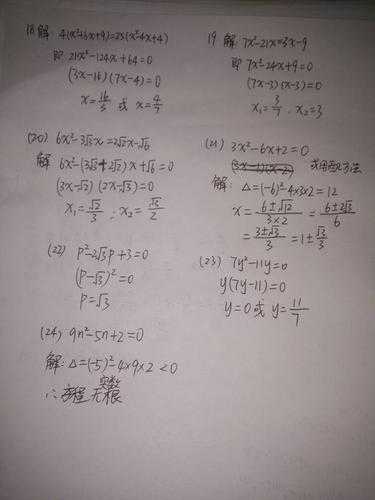 18 解: 4(x²+6x+9)=25(x²-4x+4)
即 21x²-124x+64=0
(3x-16)(7x-4)=0
x=16/3 或 x=4/7
19 解 7x²-21x=3x-9
即 7x²-24x+9=0
(7x-3)(x-3)=0
x₁=3/7 . x₂=3
(20) 6x²-3√3x=2√2x-√6
解 6x²-(3√3+2√2)x+√6=0
(3x-√2)(2x-√3)=0
x₁=√2/3 ; x₂=√3/2
(21) 3x²-6x+2=0
解: Δ=(-6)²-4×3×2=12
x=(6±√12)/(3×2)=(6±2√3)/6
=(3±√3)/3=1±√3/3
(22) p²-2√3p+3=0
(p-√3)²=0
p=√3
(23) 7y²-11y=0
y(7y-11)=0
y=0或 y=11/7
(24) 9n²-5n+2=0
解: Δ=(-5)²-4×9×2<0
∴方程无实数根